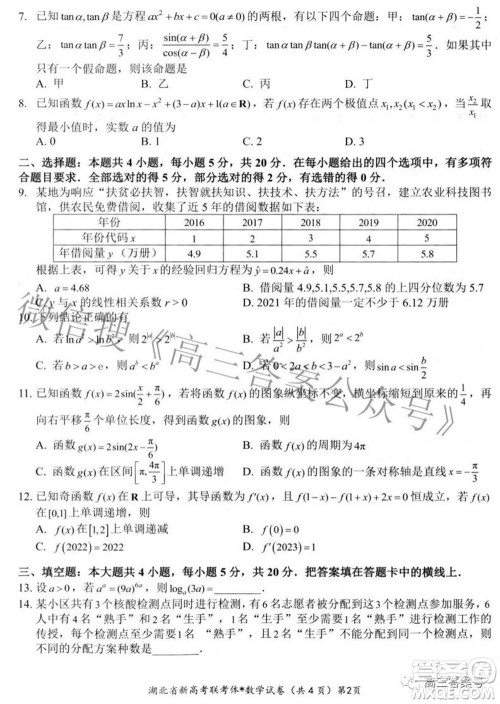 7. 已知 tanα,tanβ 是方程 ax²+bx+c=0(a≠0) 的两根，有以下四个命题：甲：tan(α+β)=-1/2；
乙：tanαtanβ=7/3；丙：sin(α+β)/cos(α-β)=5/4；丁：tanαtanβ tan(α+β)=5/3．如果其中
只有一个假命题，则该命题是
A. 甲 B. 乙 C. 丙 D. 丁
8. 已知函数 f(x)=ax ln x-x²+(3-a)x+1(a∈R)，若 f(x) 存在两个极值点 x₁,x₂(x₁<x₂)，当 x₂/x₁ 取
得最小值时，实数 a 的值为
A. 0 B. 1 C. 2 D. 3
二、选择题：本题共 4 小题，每小题 5 分，共 20 分．在每小题给出的四个选项中，有多项符
合题目要求．全部选对的得 5 分，部分选对的得 2 分，有选错的得 0 分．
9. 某地为响应“扶贫必扶智，扶智就扶知识、扶技术、扶方法”的号召，建立农业科技图书
馆，供农民免费借阅，收集了近 5 年的借阅数据如下表：
年份 2016 2017 2018 2019 2020
年份代码 x 1 2 3 4 5
年借阅量 y（万册） 4.9 5.1 5.5 5.7 5.8
根据上表，可得 y 关于 x 的经验回归方程为 ŷ=0.24x+â，则
A. â=4.68 B. 借阅量 4.9,5.1,5.5,5.7,5.8 的上四分位数为 5.7
C. y 与 x 的线性相关系数 r>0 D. 2021 年的借阅量一定不少于 6.12 万册
10. 下列结论正确的有
A. 若 a<b<0，则 a²>ab>b² B.
C. D.
11. 已知函数 f(x)=2sin(x/2+π/6)，若将函数 f(x) 的图象纵坐标不变，横坐标缩短到原来的 1/4，再
向右平移 π/6 个单位长度，得到函数 g(x) 的图象，则
A. 函数 g(x)=2sin(2x-π/6) B. 函数 f(x) 的周期为 4π
C. 函数 g(x) 在区间 [π,4π/3] 上单调递增 D. 函数 f(x) 的图象的一条对称轴是直线 x=-π/3
12. 已知奇函数 f(x) 在 R 上可导，其导函数为 f'(x)，且 f(1-x)-f(1+x)+2x=0 恒成立，若 f(x)
在[0,1]上单调递增，则
A. f(x) 在 [1,2] 上单调递减 B. f(0)=0
C. f(2022)=2022 D. f'(2023)=1
三、填空题：本大题共 4 小题，每小题 5 分，共 20 分．把答案填在答题卡中的横线上．
13. 设 a>0，若 aᵃ=(9a)^(6a)，则 a=______．
14. 某小区共有 3 个核酸检测点同时进行检测，有 6 名志愿者被分配到这 3 个检测点参加服务，6
人中有 4 名“熟手”和 2 名“生手”，1 名“生手”至少需要 1 名“熟手”进行检测工作的
传授，每个检测点至少需要 1 名“熟手”，且 2 名“生手”不能分配到同一个检测点，则不
同的分配方案种数是______．
湖北省新高考联考体*数学试卷（共 4 页）第2页
微信搜《高三答案公众号》
高三答案号